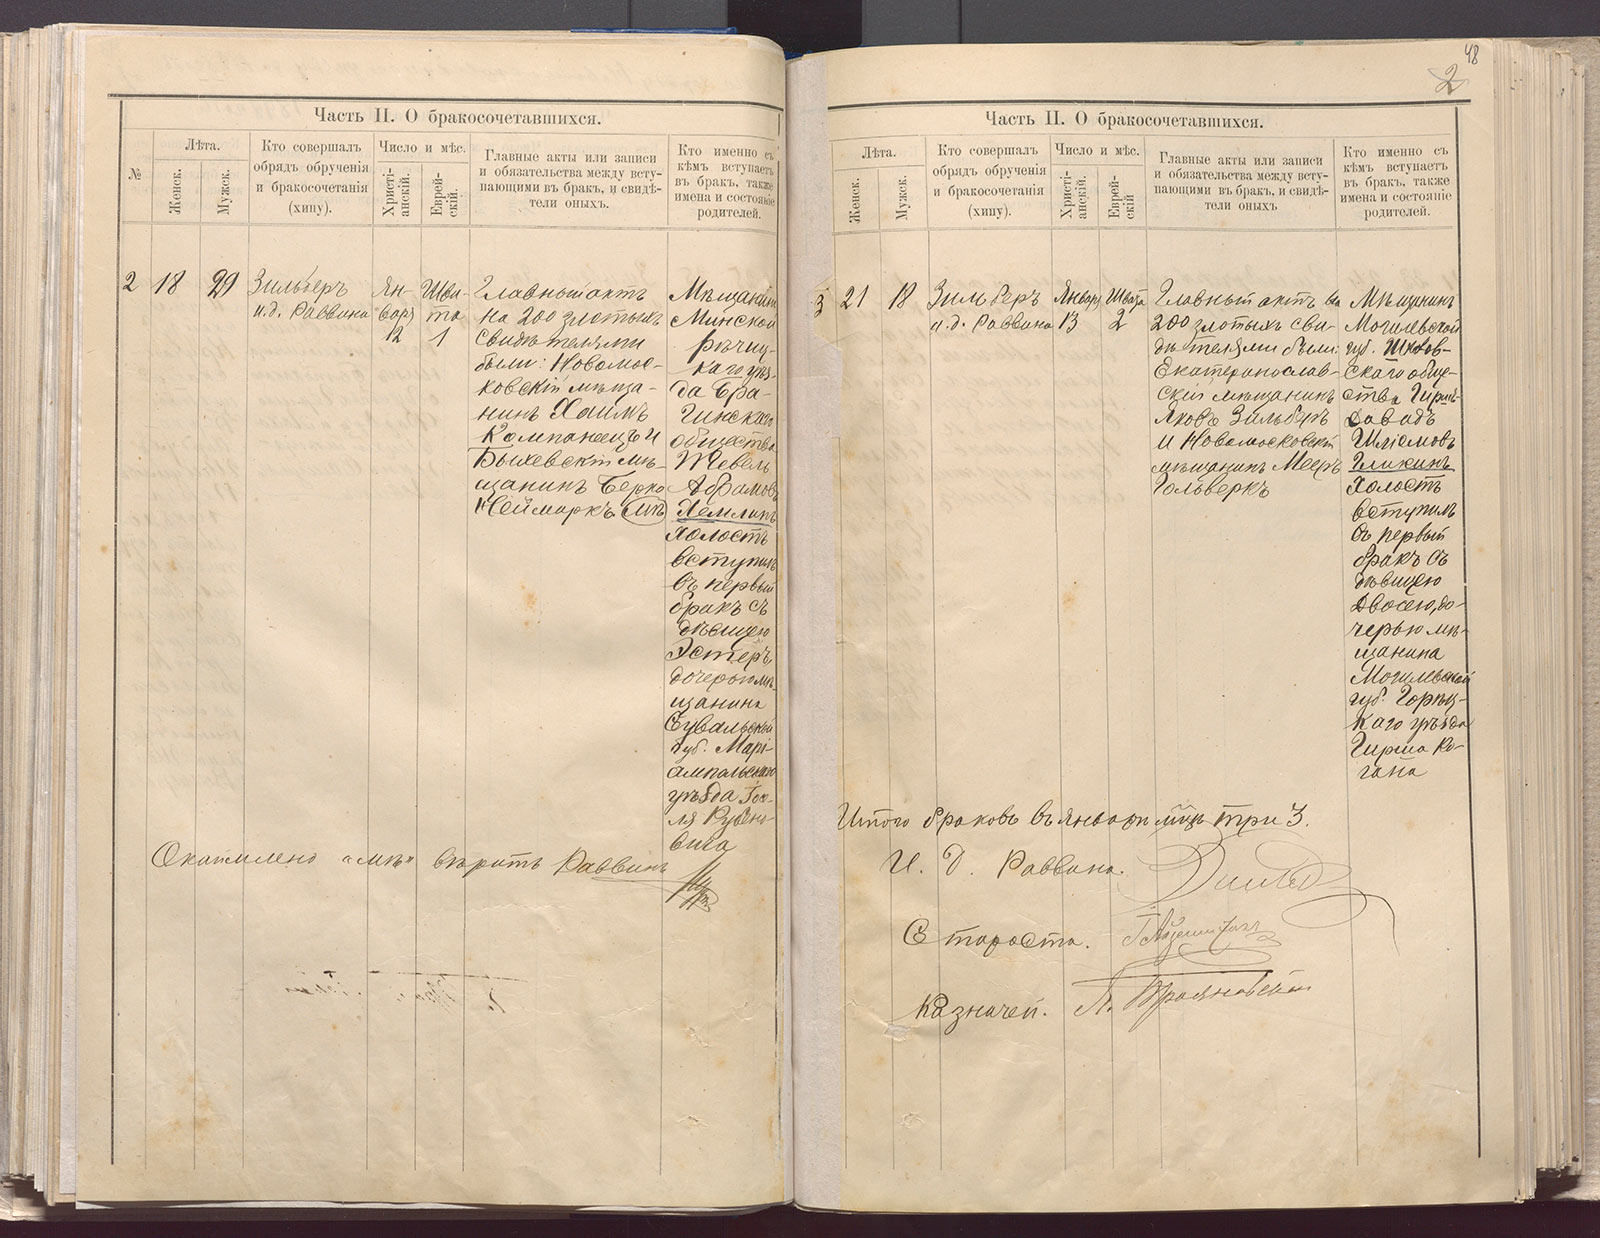 Часть II. О бракосочетавшихся.
№
Лѣта.
Женск.
Мужск.
Кто совершалъ
обрядъ обрученія
и бракосочетанія
(хипу).
Число и мѣс.
Христі-
анскій.
Еврей-
скій.
Главные акты или записи
и обязательства между всту-
пающими въ бракъ, и свидѣ-
тели оныхъ.
Кто именно съ
кѣмъ вступаетъ
въ бракъ, также
имена и состояніе
родителей.
2
18
29
Зильберъ
и.д. Раввина
Ян-
варь
12
Шва-
та
1
Главный актъ
на 200 злотыхъ
свидѣтелями
были: Новомос-
ковскій мѣща-
нинъ Хаимъ
Компанеецъ и
Быховскій мѣ-
щанинъ Берко
Неймаркъ мѣ
Мѣщанинъ
Минской
Рѣчиц-
каго уѣз-
да Бра-
гинскаго
общества
Шевель
Абрамовъ
Хемлинъ
холостъ
вступилъ
въ первый
бракъ съ
дѣвицею
Эстеръ
дочерью мѣ-
щанина
Сувальской
губ. Марі-
ампольскаго
уѣзда
ля Рувено-
вича
Скоймлено "мѣ" вѣрить Раввинъ
48
2
Часть II. О бракосочетавшихся.
Лѣта.
Женск.
Мужск.
Кто совершалъ
обрядъ обрученія
и бракосочетанія
(хипу).
Число и мѣс.
Христі-
анскій.
Еврей-
скій
Главные акты или записи
и обязательства между всту-
пающими въ бракъ, и свидѣ-
тели оныхъ.
Кто именно съ
кѣмъ вступаетъ
въ бракъ, также
имена и состояніе
родителей.
3
21
18
Зильберъ
и.д. Раввина
Январь
13
Швата
2
Главный актъ на
200 злотыхъ сви-
дѣтелями были:
Екатеринослав-
скій мѣщанинъ
Яковъ Зильберъ
и Новомосковскій
мѣщанинъ Мееръ
Гольверкъ
Мѣщанинъ
Могилевской
губ. Шклов-
скаго обще-
ства Гиршъ
Давидъ
Шліомовъ
Гликинъ
холостъ
вступилъ
въ первый
бракъ съ
дѣвицею
Двосею, до-
черью мѣ-
щанина
Могилевской
губ. Горец-
каго уѣзда
Гирша Ко-
гана
Итого браковъ въ январѣ мѣцѣ три 3.
И. Д. Раввина.
Староста.
Казначей. Л. Трояновскій